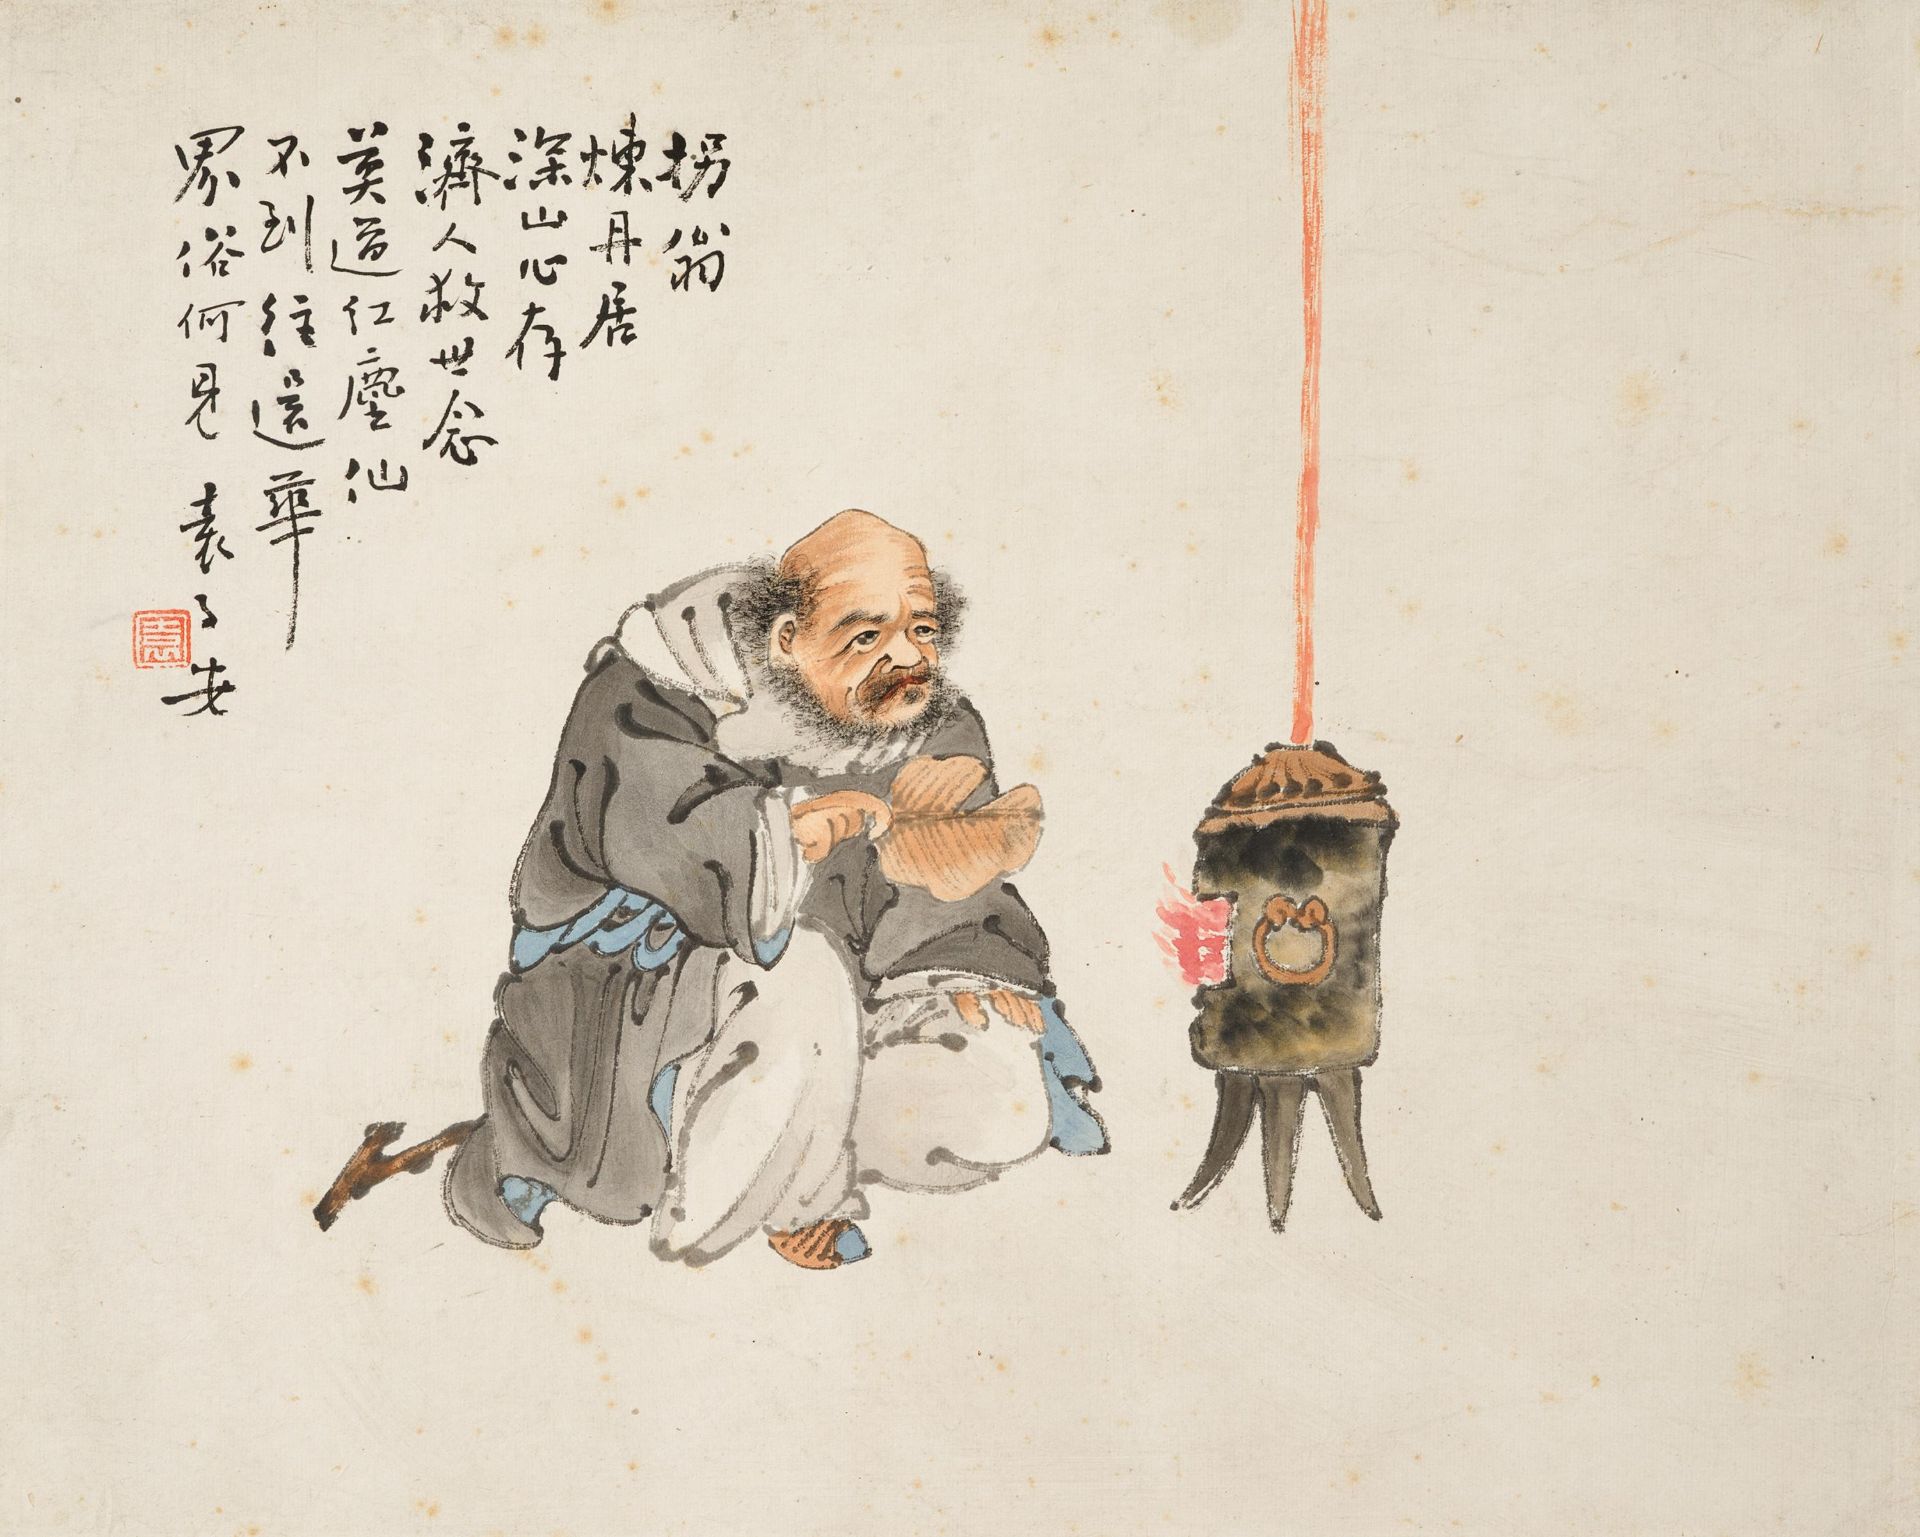 拐翁
煉丹居
深山心存
濟人救世念
莫道紅塵仙
不到往還華
界俗何見 袁子安